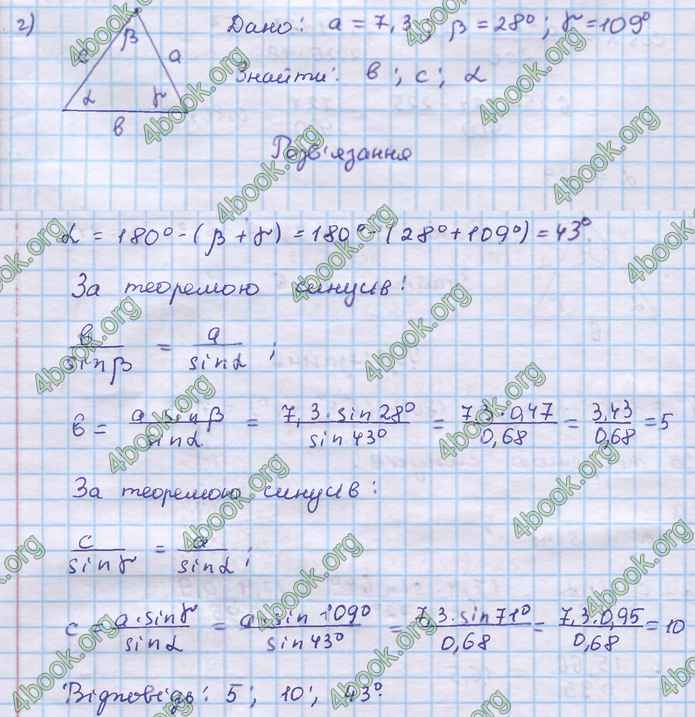 г) Дано: a = 7,3; β = 28°; γ = 109°
β
c a
Знайти: в; c; α
α γ
в
Розв'язання
α = 180° - (β + γ) = 180° - (28° + 109°) = 43°
За теоремою синусів:
в/sinβ = a/sinα;
в = a·sinβ/sinα = 7,3·sin28°/sin43° = 7,3·0,47/0,68 = 3,43/0,68 = 5
За теоремою синусів:
c/sinγ = a/sinα;
c = a·sinγ/sinα = a·sin109°/sin43° = 7,3·sin71°/0,68 = 7,3·0,95/0,68 = 10
Відповідь: 5; 10; 43°
4book.org